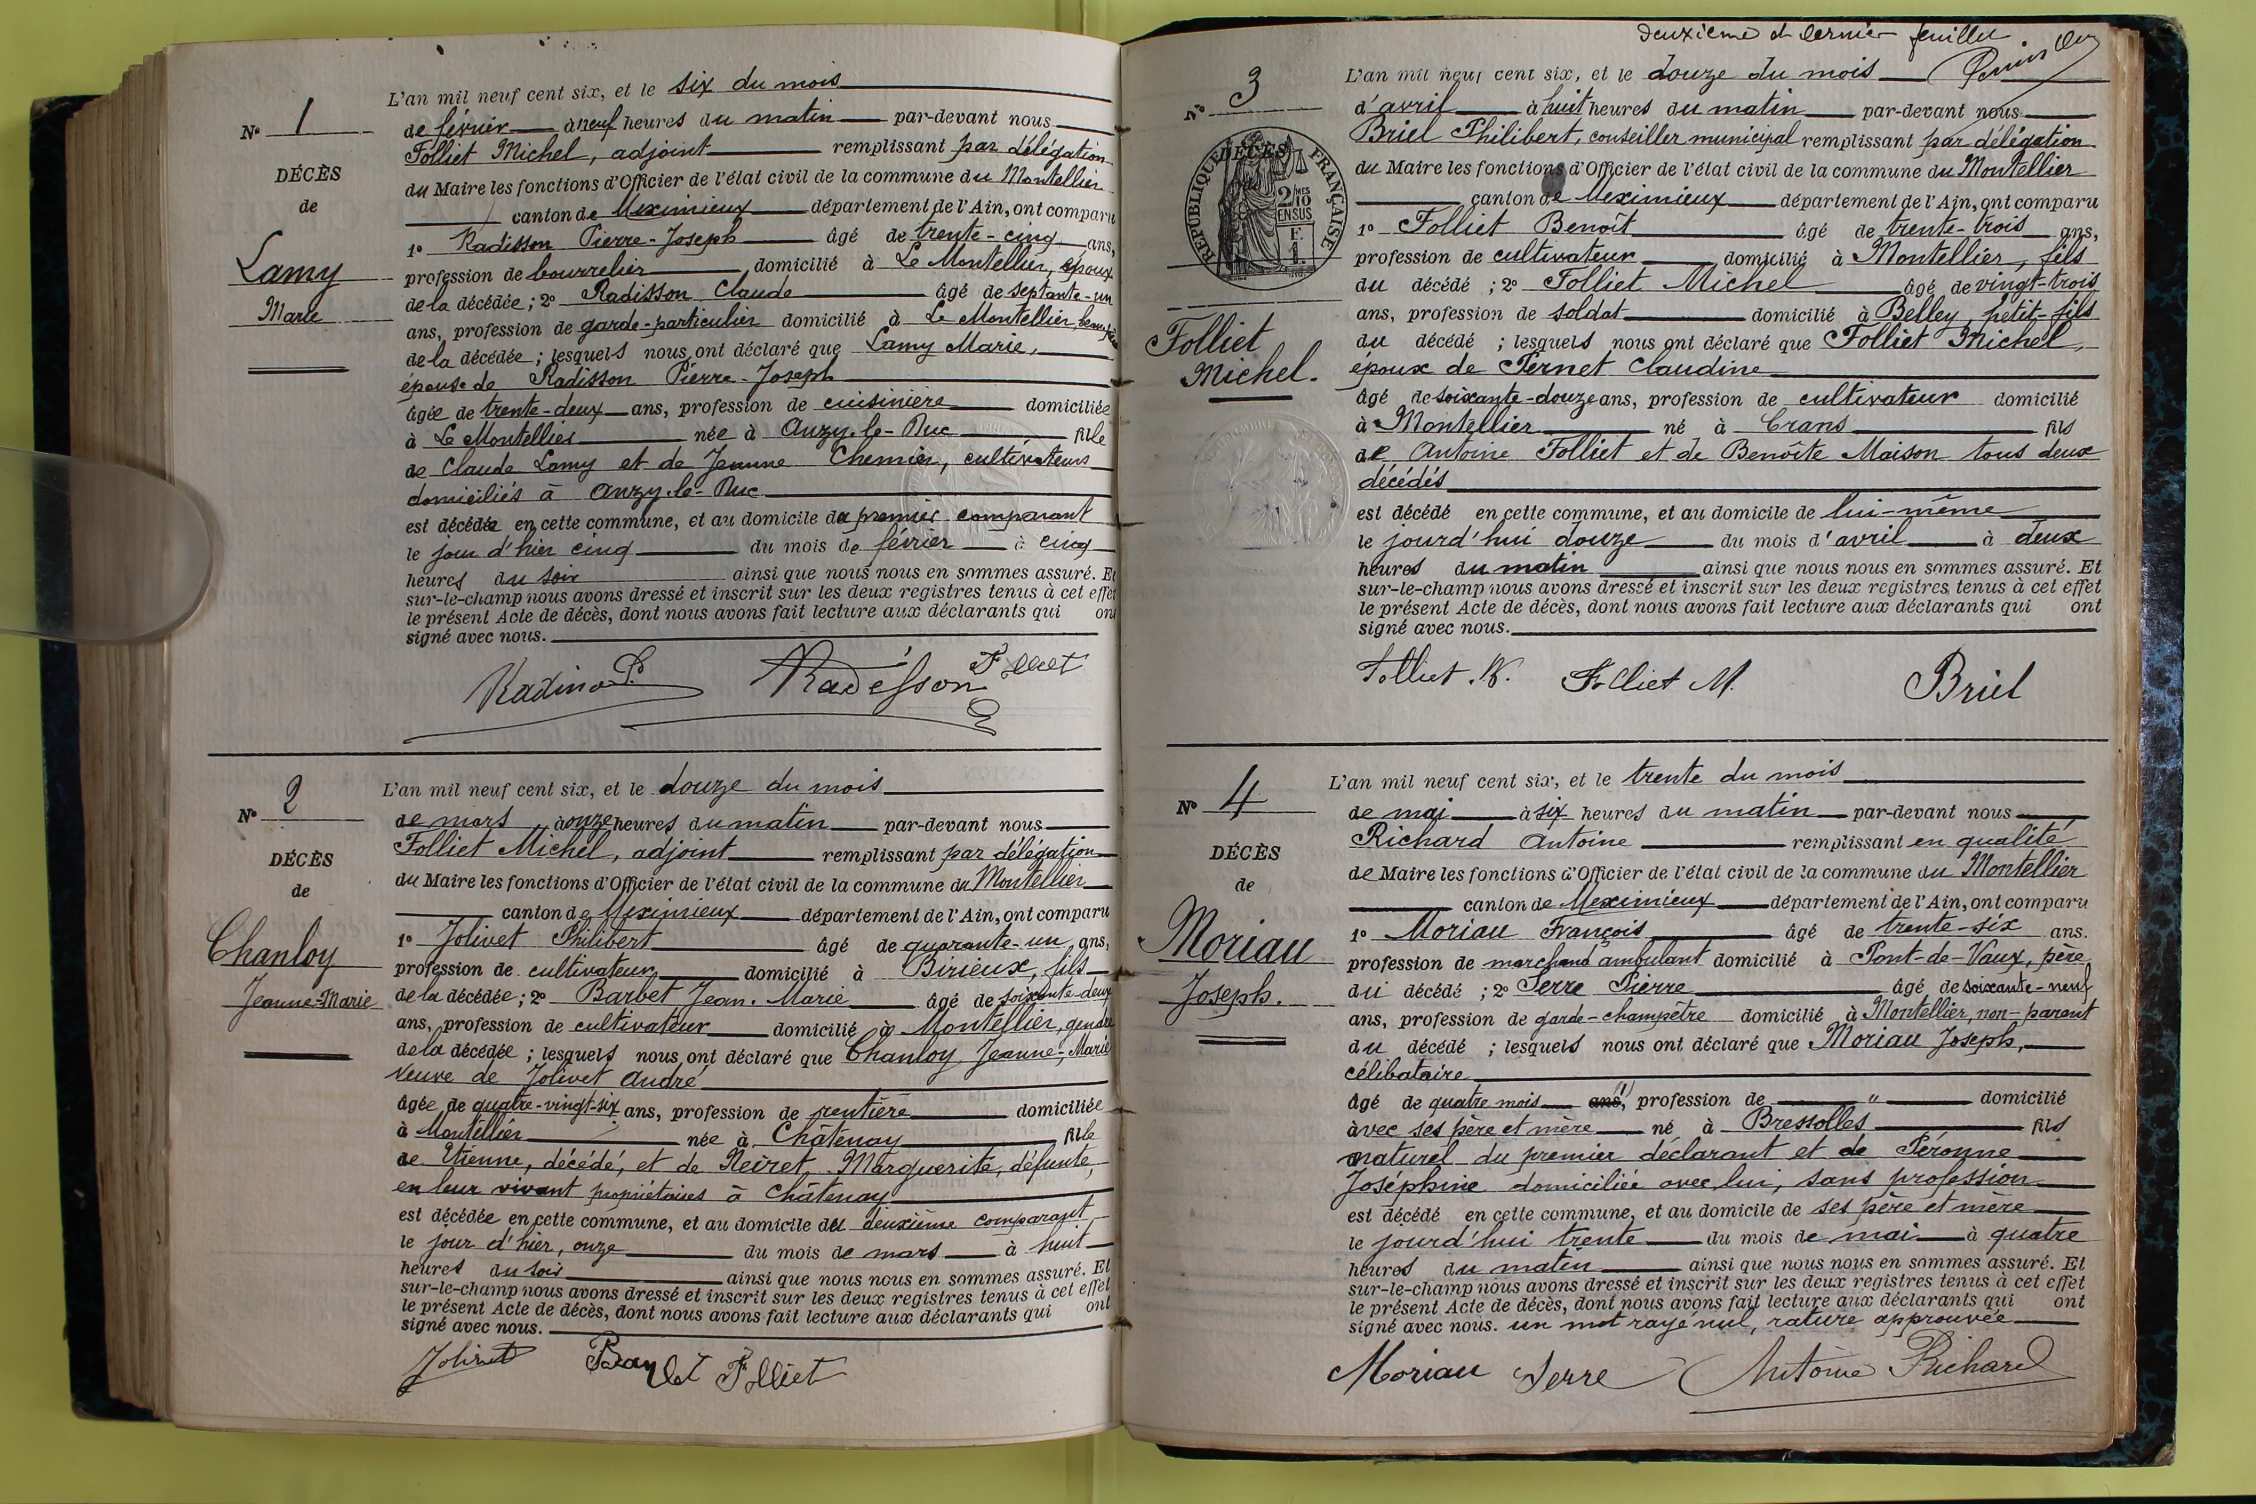 N° 1
DÉCÈS
de
Lamy
Marie
L'an mil neuf cent six, et le six du mois
de février à neuf heures du matin par-devant nous
Folliet Michel, adjoint remplissant par délégation
du Maire les fonctions d'Officier de l'état civil de la commune du Montellier
canton de Meximieux département de l'Ain, ont comparu
1° Radisson Pierre-Joseph âgé de trente-cinq ans,
profession de bourrelier domicilié à Le Montellier, époux
de la décédée ; 2° Radisson Claude âgé de septante-un
ans, profession de garde-particulier domicilié à Le Montellier, beau-père
de la décédée ; lesquels nous ont déclaré que Lamy Marie,
épouse de Radisson Pierre-Joseph
âgée de trente-deux ans, profession de cuisinière domiciliée
à Le Montellier née à Anzy-le-Duc fille
de Claude Lamy et de Jeanne Chemier, cultivateurs
domiciliés à Anzy-le-Duc
est décédée en cette commune, et au domicile du premier comparant
le jour d'hier cinq du mois de février à cinq
heures du soir ainsi que nous nous en sommes assuré. Et
sur-le-champ nous avons dressé et inscrit sur les deux registres tenus à cet effet
le présent Acte de décès, dont nous avons fait lecture aux déclarants qui ont
signé avec nous.
Radisson Folliet
N° 2
DÉCÈS
de
Chanloy
Jeanne-Marie
L'an mil neuf cent six, et le douze du mois
de mars à onze heures du matin par-devant nous
Folliet Michel, adjoint remplissant par délégation
du Maire les fonctions d'Officier de l'état civil de la commune du Montellier
canton de Meximieux département de l'Ain, ont comparu
1° Jolivet Philibert âgé de quarante-un ans,
profession de cultivateur domicilié à Birieux, fils
de la décédée ; 2° Barbet Jean-Marie âgé de soixante-deux
ans, profession de cultivateur domicilié à Montellier, gendre
de la décédée ; lesquels nous ont déclaré que Chanloy Jeanne-Marie
veuve de Jolivet André
âgée de quatre-vingt-six ans, profession de rentière domiciliée
à Montellier née à Châtenay fille
de Etienne, décédé, et de Neiret Marguerite, défunte,
en leur vivant propriétaires à Châtenay
est décédée en cette commune, et au domicile du deuxième comparant
le jour d'hier, onze du mois de mars à huit
heures du soir ainsi que nous nous en sommes assuré. Et
sur-le-champ nous avons dressé et inscrit sur les deux registres tenus à cet effet
le présent Acte de décès, dont nous avons fait lecture aux déclarants qui ont
signé avec nous.
Jolivet Barbet Folliet
deuxième et dernier feuillet
N° 3
RÉPUBLIQUE FRANÇAISE
DÉCÈS
2/10 MES
EN SUS
Folliet
Michel.
L'an mil neuf cent six, et le douze du mois
d'avril à huit heures du matin par-devant nous
Briel Philibert, conseiller municipal remplissant par délégation
du Maire les fonctions d'Officier de l'état civil de la commune du Montellier
canton de Meximieux département de l'Ain, ont comparu
1° Folliet Benoît âgé de trente-trois ans,
profession de cultivateur domicilié à Montellier, fils
du décédé ; 2° Folliet Michel âgé de vingt-trois
ans, profession de soldat domicilié à Belley, petit-fils
du décédé ; lesquels nous ont déclaré que Folliet Michel,
époux de Pernet Claudine
âgé de soixante-douze ans, profession de cultivateur domicilié
à Montellier né à Crans fils
de Antoine Folliet et de Benoîte Maison tous deux
décédés
est décédé en cette commune, et au domicile de lui-même
le jourd'hui douze du mois d'avril à deux
heures du matin ainsi que nous nous en sommes assuré. Et
sur-le-champ nous avons dressé et inscrit sur les deux registres tenus à cet effet
le présent Acte de décès, dont nous avons fait lecture aux déclarants qui ont
signé avec nous.
Folliet Folliet M. Briel
N° 4
DÉCÈS
de
Moriau
Joseph.
L'an mil neuf cent six, et le trente du mois
de mai à six heures du matin par-devant nous
Richard Antoine remplissant en qualité
de Maire les fonctions d'Officier de l'état civil de la commune du Montellier
canton de Meximieux département de l'Ain, ont comparu
1° Moriau François âgé de trente-six ans.
profession de marchand ambulant domicilié à Pont-de-Vaux, père
du décédé ; 2° Serre Pierre âgé de soixante-neuf
ans, profession de garde-champêtre domicilié à Montellier, non-parent
du décédé ; lesquels nous ont déclaré que Moriau Joseph,
célibataire
âgé de quatre mois ans, profession de " domicilié
avec ses père et mère né à Bressolles fils
naturel du premier déclarant et de Péronne
Joséphine domiciliée avec lui, sans profession
est décédé en cette commune, et au domicile de ses père et mère
le jourd'hui trente du mois de mai à quatre
heures du matin ainsi que nous nous en sommes assuré. Et
sur-le-champ nous avons dressé et inscrit sur les deux registres tenus à cet effet
le présent Acte de décès, dont nous avons fait lecture aux déclarants qui ont
signé avec nous. un mot rayé nul, rature approuvée
Moriau Serre Antoine Richard